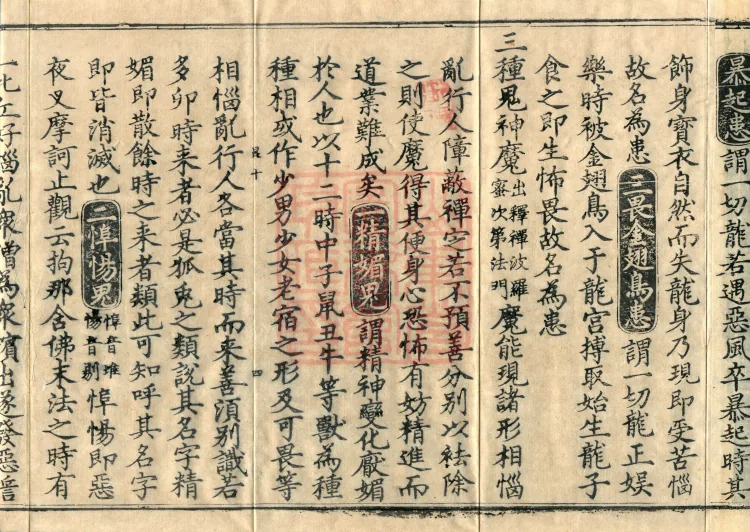 暴起患謂一切龍若遇惡風卒暴起時其
飾身寶衣自然而失龍身乃現即受苦惱
故名為患三畏金翅鳥患謂一切龍正娛
樂時被金翅鳥入于龍宮搏取始生龍子
食之即生怖畏故名為患
三種鬼神魔出釋禪波羅蜜次第法門魔能現諸形相惱
亂行人障蔽禪定若不預善分別以祛除
之則使魔得其便身心恐怖有妨精進而
道業難成矣一精媚鬼謂精神變化厭媚
於人也以十二時中子鼠丑牛等獸為種
種相或作少男少女老宿之形及可畏等
相惱亂行人各當其時而来善須別識若
多卯時来者必是狐兎之類說其名字精
媚即散餘時之来者類此可知呼其名字
即皆消滅也二惸惕鬼惸音堆惕音剔惸惕即惡
夜叉摩訶止觀云拘那含佛末法之時有
一比丘好惱亂衆僧為衆擯出遂發惡誓